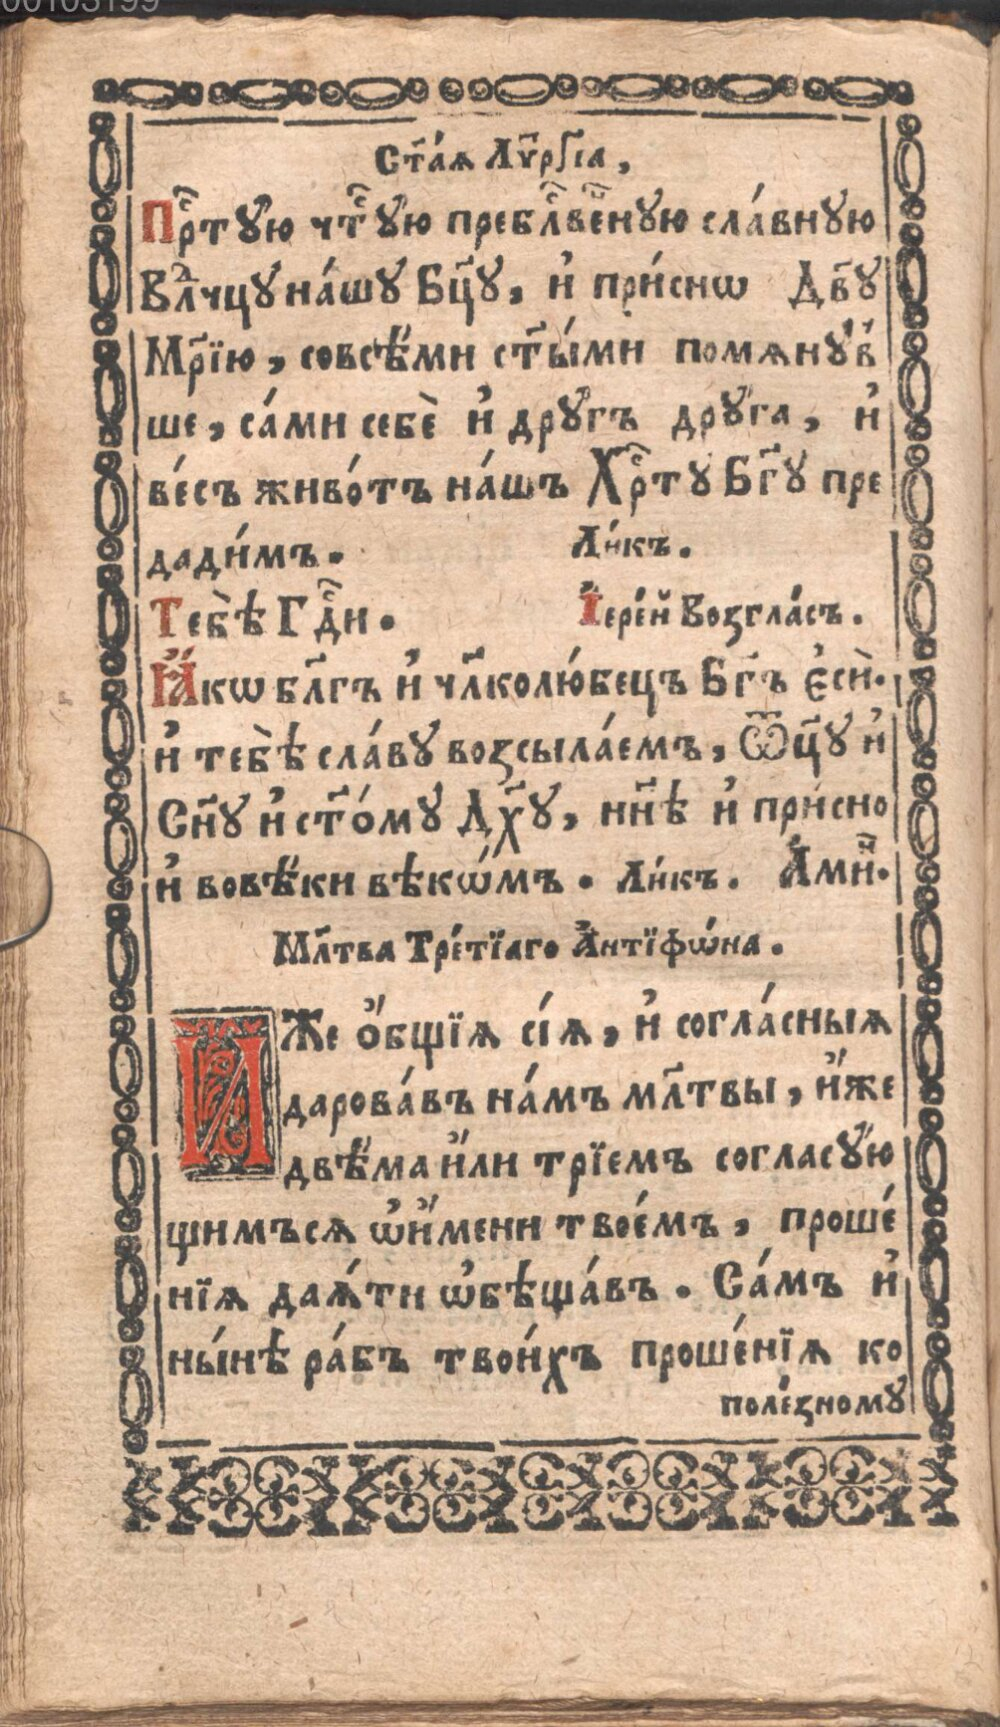 00103199
Ст҃а́ѧ Лѷрⷢ҇і́а,
Прⷭ҇тꙋ́ю чⷭ҇тꙋ́ю пребл҃ве́ннꙋю сла́внꙋю
Влⷣчцꙋ на́шꙋ Бц҃ꙋ, и҆ при́снѡ Дв҃ꙋ
Мр҃їю, совсѣ́ми ст҃ы́ми помѧнꙋ́в
ше, са́ми себѐ и҆ дрꙋ́гъ дрꙋ́га, и҆
ве́сь живо́тъ на́шъ Хрⷭ҇тꙋ Бг҃ꙋ пре
дади́мъ. Ли́къ.
Тебѣ̀ Гдⷭ҇и. І҆ере́й Возгла́съ.
Ꙗ҆́кѡ бл҃гъ и҆ чл҃колю́бецъ Бг҃ъ є҆сѝ.
и҆ тебѣ̀ сла́вꙋ возсыла́емъ, Ѿц҃ꙋ и҆
Сн҃ꙋ и҆ ст҃о́мꙋ Дх҃ꙋ, нн҃ѣ и҆ при́сно
и҆ вовѣ́ки вѣкѡ́мъ. Ли́къ. А҆ми́н.
Мл҃тва Тре́тїаго А҆нтїфѡ́на.
Иже ѻ҆́бщїѧ сі́ѧ, и҆ согла́сныѧ
дарова́въ на́мъ мл҃твы, и҆́же
двѣ́ма и҆́ли трїемъ согласꙋ́ю
щимъсѧ ѡ҆и҆́мени твое́мъ, проше́
нїѧ даѧ́ти ѡ҆бѣща́въ. Са́мъ и҆
ны́нѣ ра́бъ твои́хъ проше́нїѧ ко
поле́зномꙋ